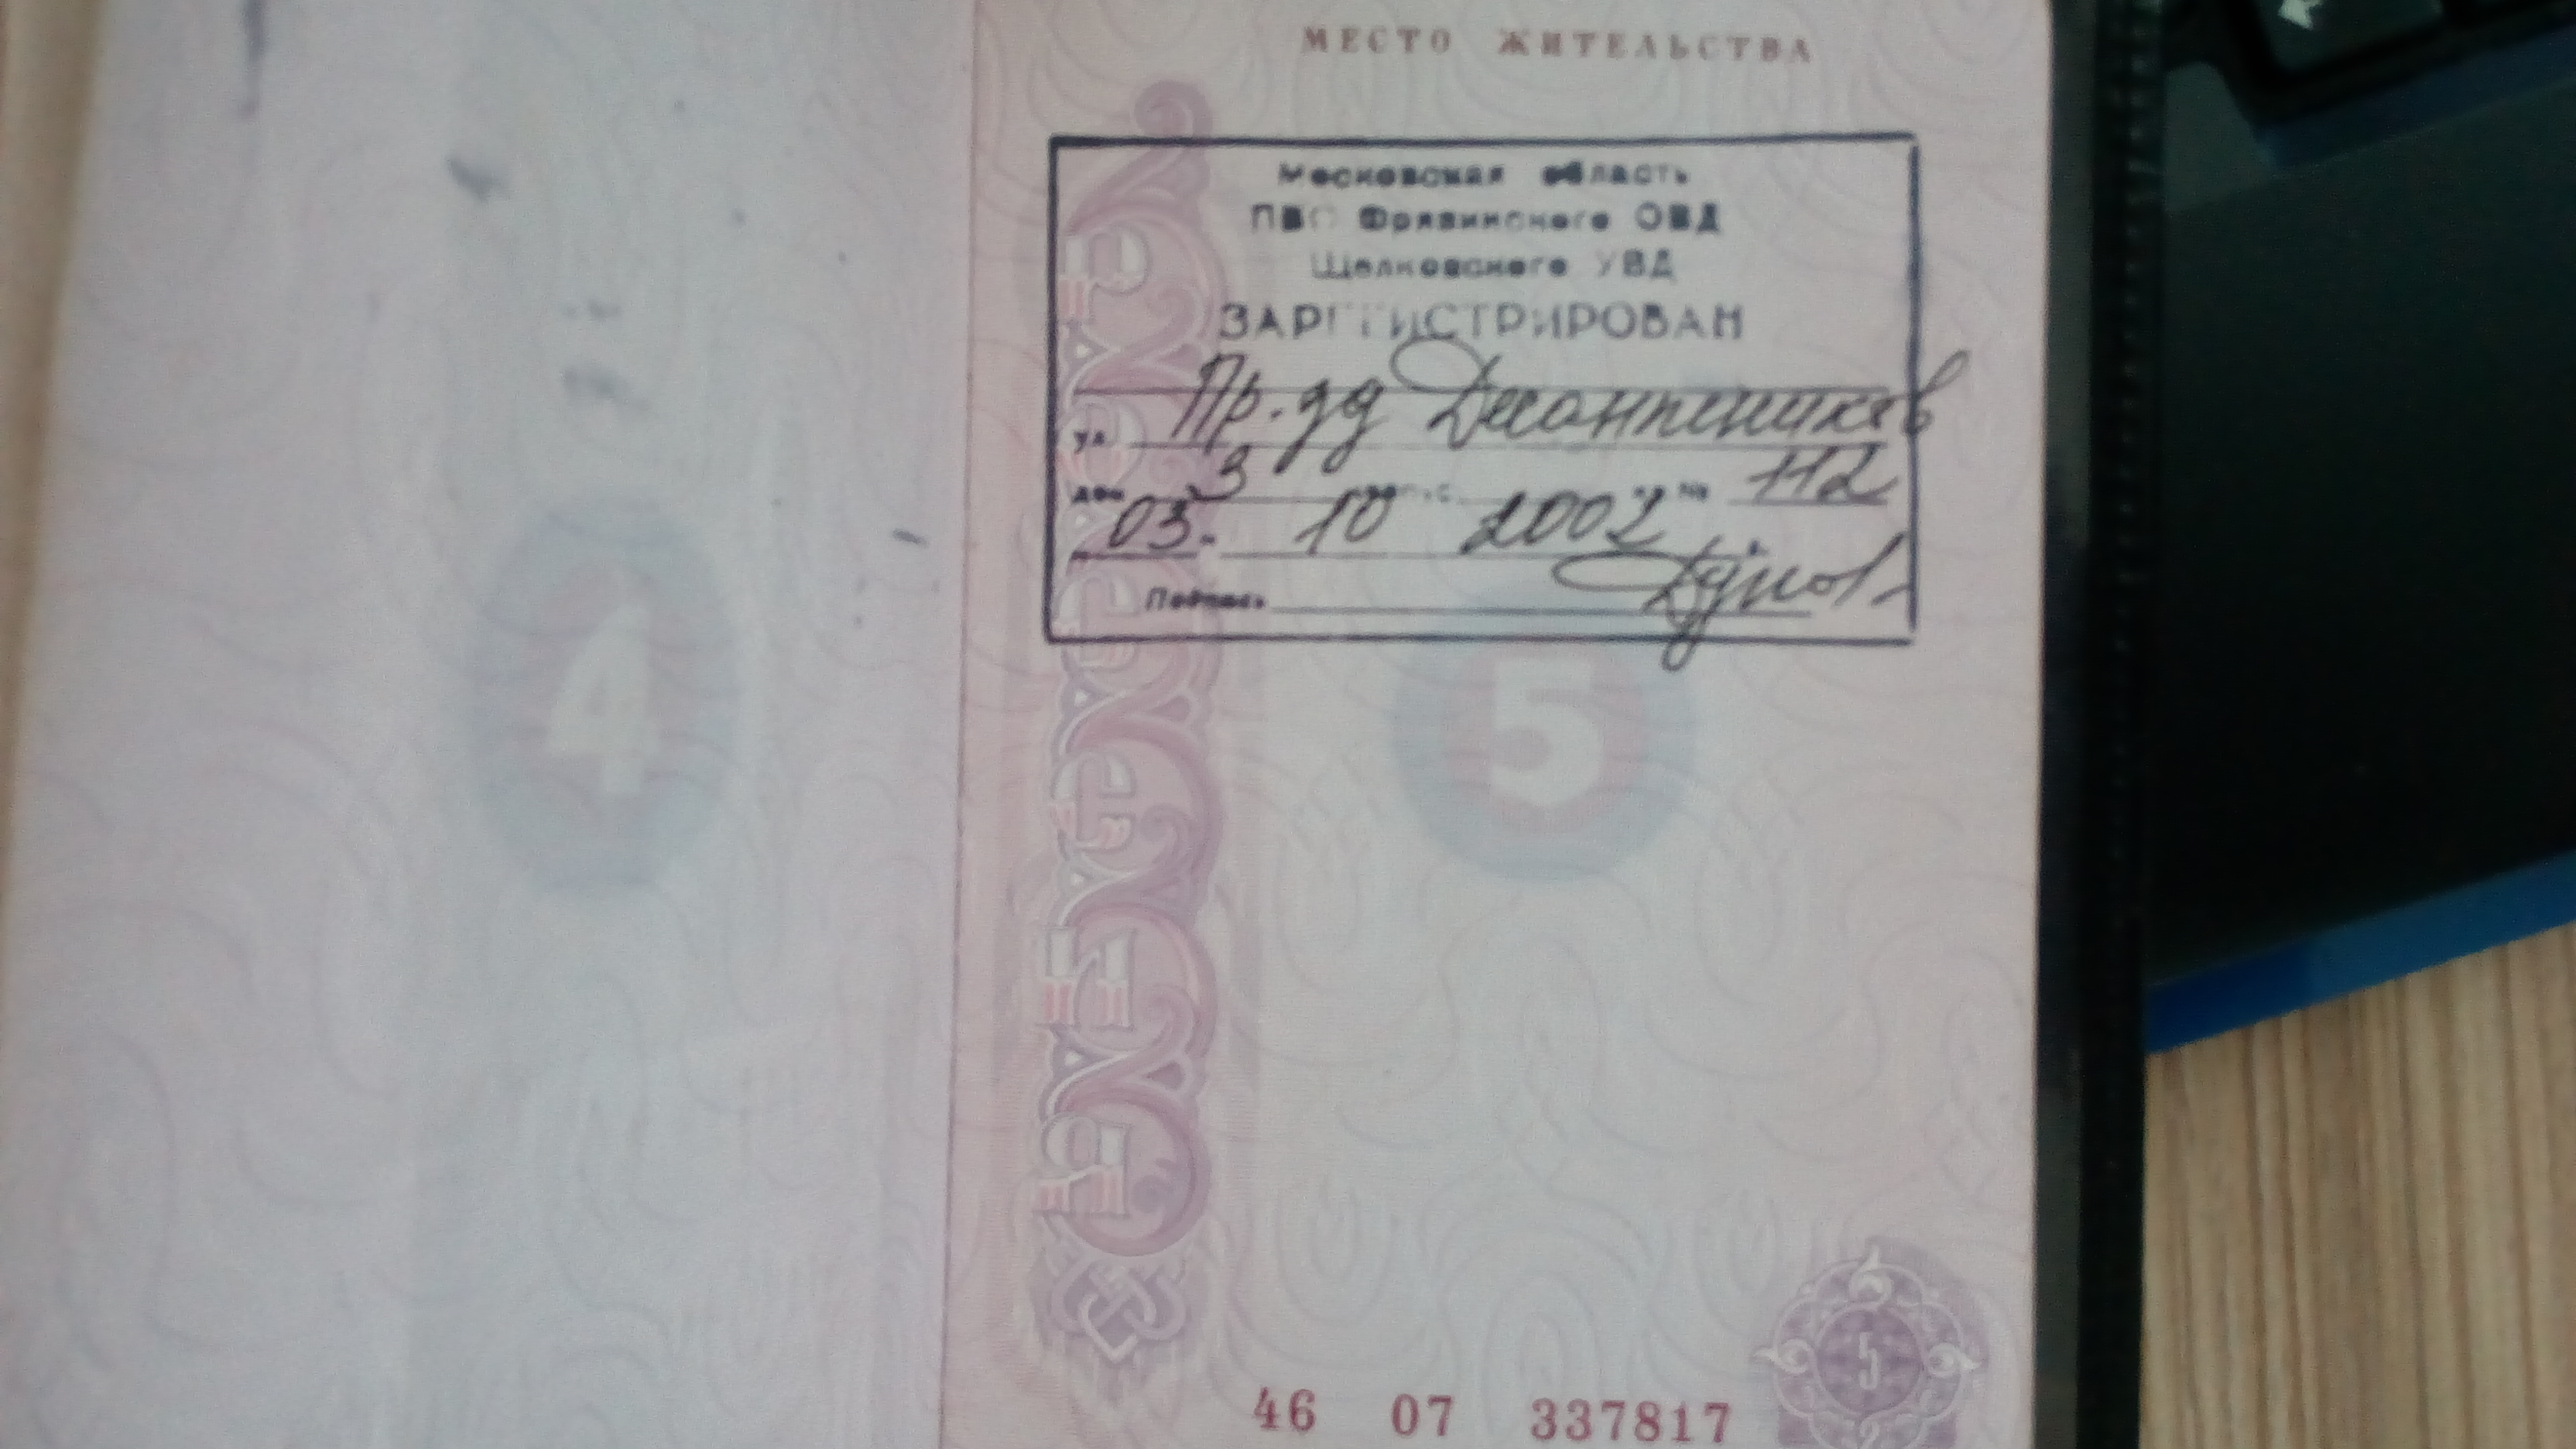 МЕСТО ЖИТЕЛЬСТВА
Московская область
ПВС Фрязинского ОВД
Щелковского УВД
ЗАРЕГИСТРИРОВАН
ул. Пр. дд Десантников
дом 3 корпус кв. № 112
03. 10 2002 г.
Подпись
4
5
россия
5
46 07 337817